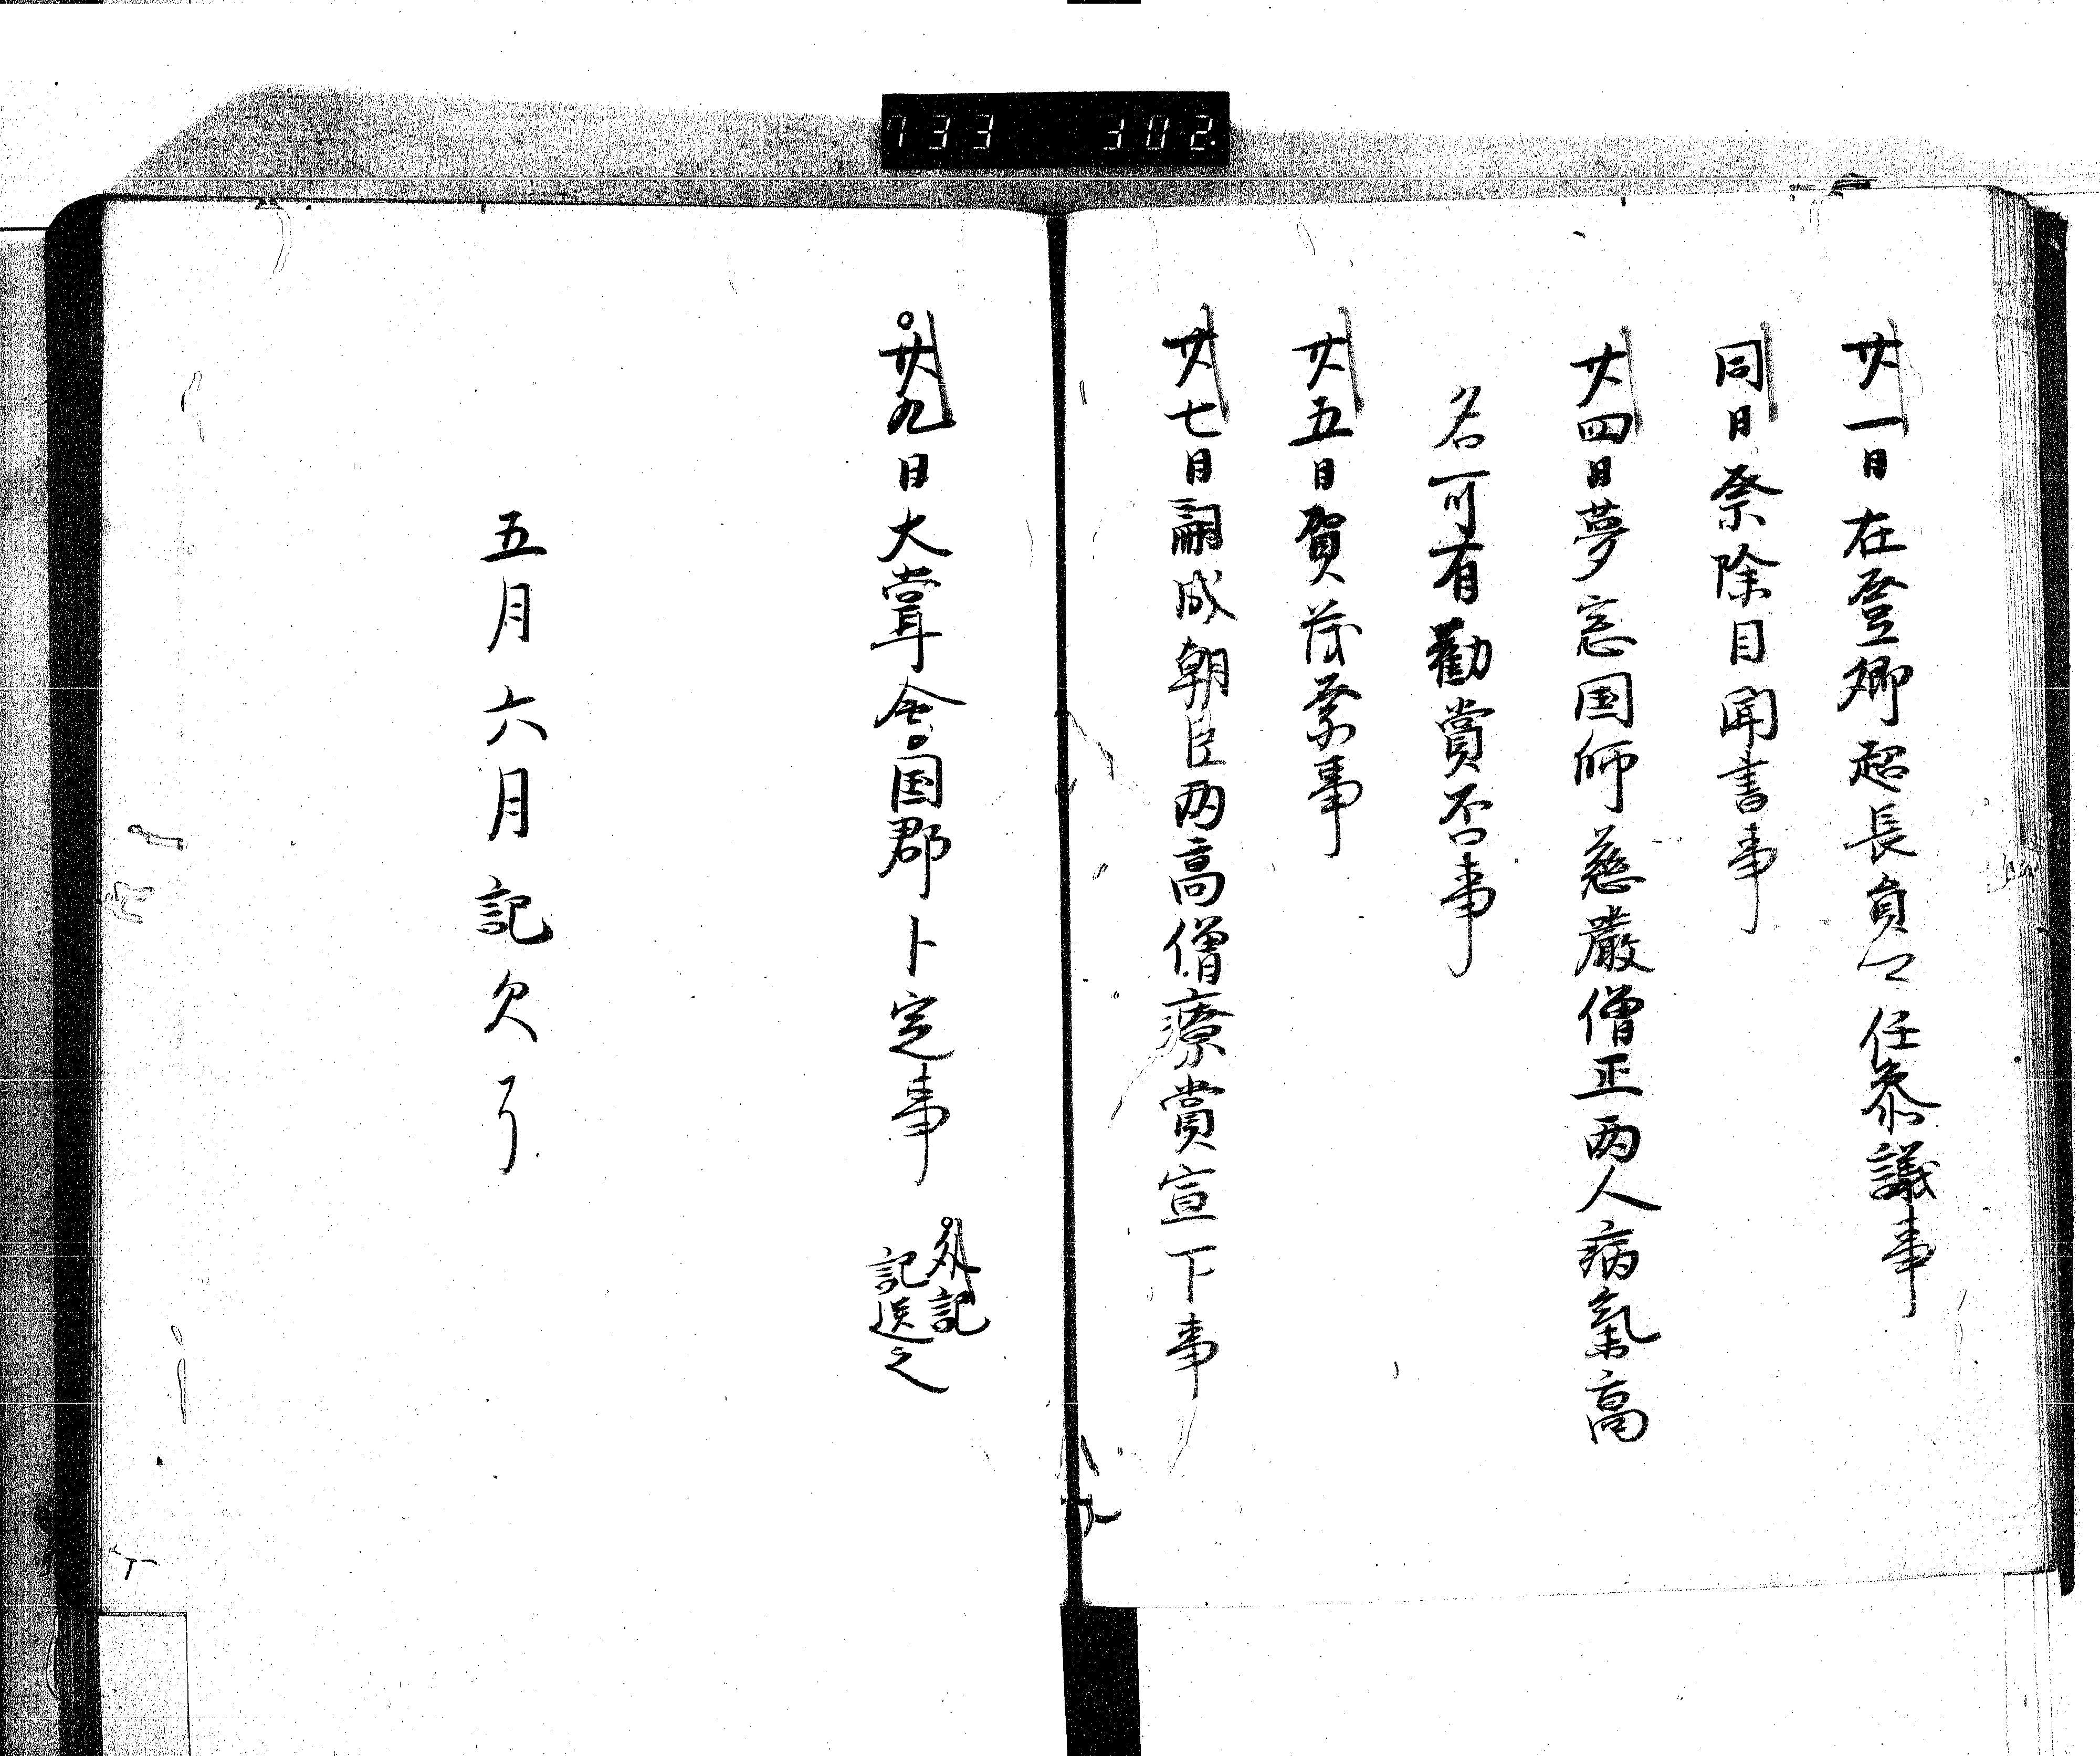 733 302.
廿一日在登卿超長員々任参議事
同日祭除目聞書事
廿四日夢窓国師慈厳僧正両人病氣高
名可有勸賞否事
廿五日賀茂祭事
廿七日嗣成朝臣両高僧療賞宣下事
廿九日大嘗會国郡卜定事 外記
記送之
五月六月記欠了